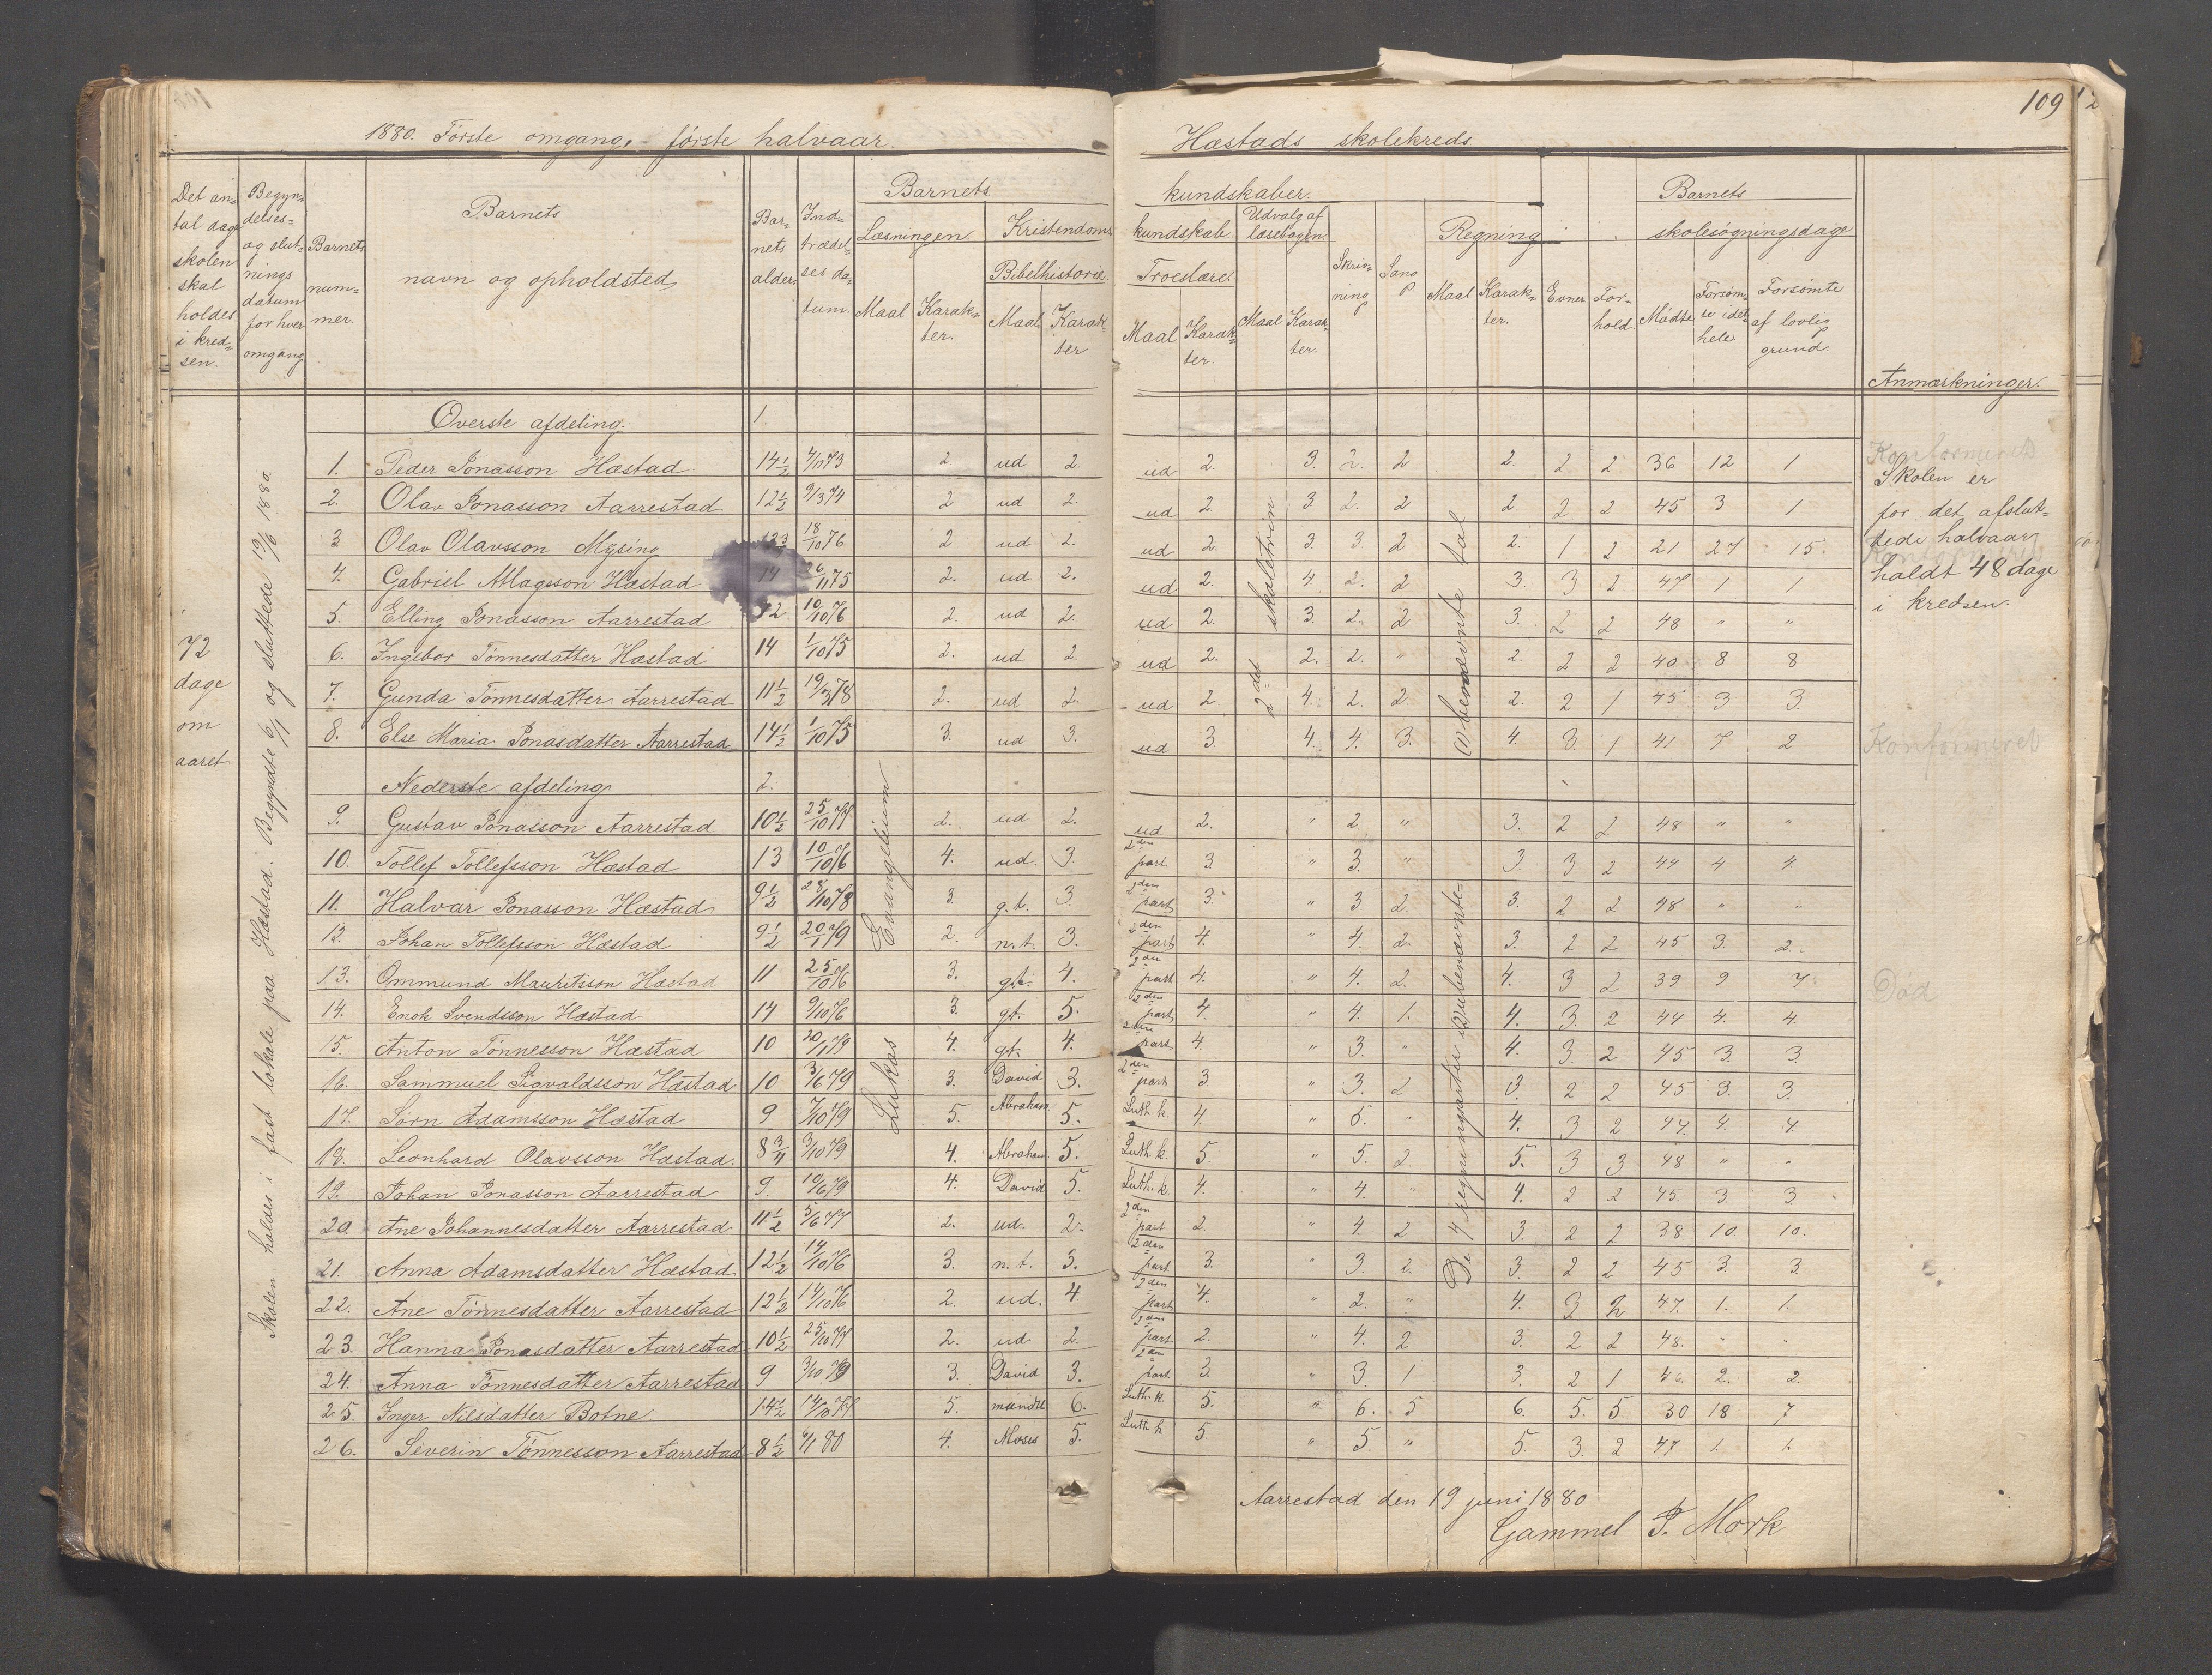 109
1880. Første omgang, første halvaar.
Hæstads skolekreds.
Det antal dage skolen skal holdes i kredsen.
Begyndelses- og slutnings datum for hver omgang
Barnets nummer.
Barnets navn og opholdsted
Barnets alder.
Indtrædelses datum.
Barnets kundskaber.
Læsningen. Maal Karakter.
Kristendomskundskab.
Bibelhistorie. Maal. Karakter
Troeslære. Maal Karakter.
Udvalg af læsebogen. Maal Karakter.
Skrivning
Sang
Regning Maal Karakter.
Evner
Forhold.
Barnets skolesøgningsdage
Mødte Forsømte i det hele Forsømte af lovlig grund.
Anmærkninger.
72 dage om aaret
Skolen holdes i fast lokale paa Hæstad. Begyndte 6/1 og sluttede 19/6 1880.
Lukas Evangelium
2det skoletrin
Ubenævnte tal
De 4 regningsarter i ubenævnte
Øverste afdeling 1.
1. Peder Jonasson Hæstad. 14 1/2 4/11 73 2. ud 2. ud 2. 3. 2. 2 2. 2 2 36 12 1
2. Olav Jonasson Aarrestad 12 1/2 9/3 74 2 ud 2. ud 2. 3 2. 2 2. 2 2 45 3 1
3 Olav Olavsson Mysing 18/10 76 2 ud 2. ud 2. 3. 3. 2 2. 1 2 21 27 15.
4. Gabriel Aslagsson Hæstad 14 26/11 75 2. ud 2. ud 2. 4. 2. 2 3. 3 2 47 1 1
5. Elling Jonasson Aarrestad 12 10/10 76 2. ud 2. ud 2. 3. 2. 2 3. 2 2 48 " "
6. Ingebor Tønnesdatter Hæstad 14 1/10 75 2. ud 2. ud 2. 2. 2. " 2. 2 2 40 8 8
7. Gunda Tønnesdatter Aarrestad 11 1/2 19/3 78 2. ud 2. ud 2. 4. 2. 2. 2. 2 1 45 3 3.
8. Else Maria Jonasdatter Aarrestad 14 1/2 1/10 75 3. ud 3. ud 3. 4. 4. 3. 4. 3. 1 41 7 2
Nederste afdeling 2.
9. Gustav Jonasson Aarrestad 10 1/2 25/10 77 2. ud 2. ud 2. " 2. " 3. 2 2 48 " "
10. Tollef Tollefsson Hæstad 13 10/10 76 4. ud. 3. 2den part 3. " 3. " 3. 3 2 44 4 4.
11. Halvar Jonasson Hæstad 9 1/2 28/10 78 3. g.t. 3. 2den part 3. " 3. 2. 3. 2 2 48 " "
12. Johan Tollefsson Hæstad 9 1/2 20/1 79 2. n.t. 3. 2den part 4. " 4. 2. 3. 2 2 45 3. 2.
13. Ommund Mauritsson Hæstad 11 25/10 76 3. g.t. 4. 2den part 4. " 4. 2. 4. 3 2 39 9 7.
14. Enok Svendsson Hæstad 14 9/10 76 3. gt. 5. 2den part 4. " 4. 1. 4. 3. 2 44 4. 4.
15. Anton Tønnesson Hæstad 10 20/1 79 4. gt. 4. 2den part 4. " 3. " 4. 3. 2 45 3. 3.
16. Sammuel Sigvaldsson Hæstad 10 3/6 79 3. David 3. 2den part 3. " 3. 2 3. 2 2 45 3. 3.
17. Sørn Adamsson Hæstad 9 7/10 79 5. Abraham 5. Luth. k. 4. " 5. " 4. 3 2 44. 4. 4.
18. Leonhard Olavsson Hæstad. 8 3/4 3/10 79 4. Abraham 5. Luth. k. 5. " 5. 2. 5. 3 3 48 " "
19. Johan Jonasson Aarrestad 9. 10/6 79 4. David 5. Luth. k. 4. " 4. " 4. 2 2 45. 3. 3.
20. Ane Johannesdatter Aarrestad 11 1/2 5/6 77 2. ud. 2. 2den part 2. " 4. 2 3. 2 2 38 10. 10.
21. Anna Adamsdatter Hæstad 12 1/2 14/10 76 3. n.t. 3. 2den part 3. " 3. 2. 3. 2 2 45 3. 3.
22. Ane Tønnesdatter Aarrestad 12 1/2 14/10 76 2. ud. 4 2den part 4. " 2. " 4. 3 2 47. 1. 1.
23. Hanna Jonasdatter Aarrestad 10 1/2 25/10 77 2. ud 2. 2den part 2. " 4. 2 3. 2 2 48. " "
24. Anna Tønnesdatter Aarrestad 9 3/10 79 3. David 3. 2den part 3. " 3 1 3. 2 1 46. 2. 2.
25. Inger Nilsdatter Botne 14 1/2 14/10 77 5. mundtl 6. Luth. k. 5. " 6. 5 6. 5. 5 30 18 7
26. Severin Tønnesson Aarrestad 8 1/2 6/1 80 4. Moses 5. Luth k 5. " 5. " 5. 3. 2 47 1. 1.
Konfirmeret
Skolen er
for det afslut-
tede halvaar
holdt 48 dage
i kredsen.
Konfirmeret
Død
Aarrestad den 19 juni 1880
Gammel P. Mork